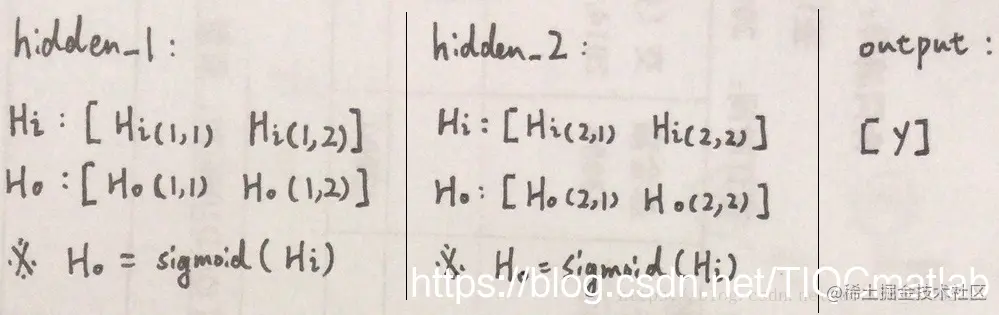 hidden_1 :
Hi : [ Hi(1,1) Hi(1,2)]
Ho : [ Ho(1,1) Ho(1,2)]
※ Ho = sigmoid ( Hi )
hidden_2 :
Hi : [Hi(2,1) Hi(2,2)]
Ho : [Ho(2,1) Ho(2,2)]
※ Ho = sigmoid (Hi)
output :
[ y ]
https://blog.csdn.net/TIQCmatlab
@稀土掘金技术社区